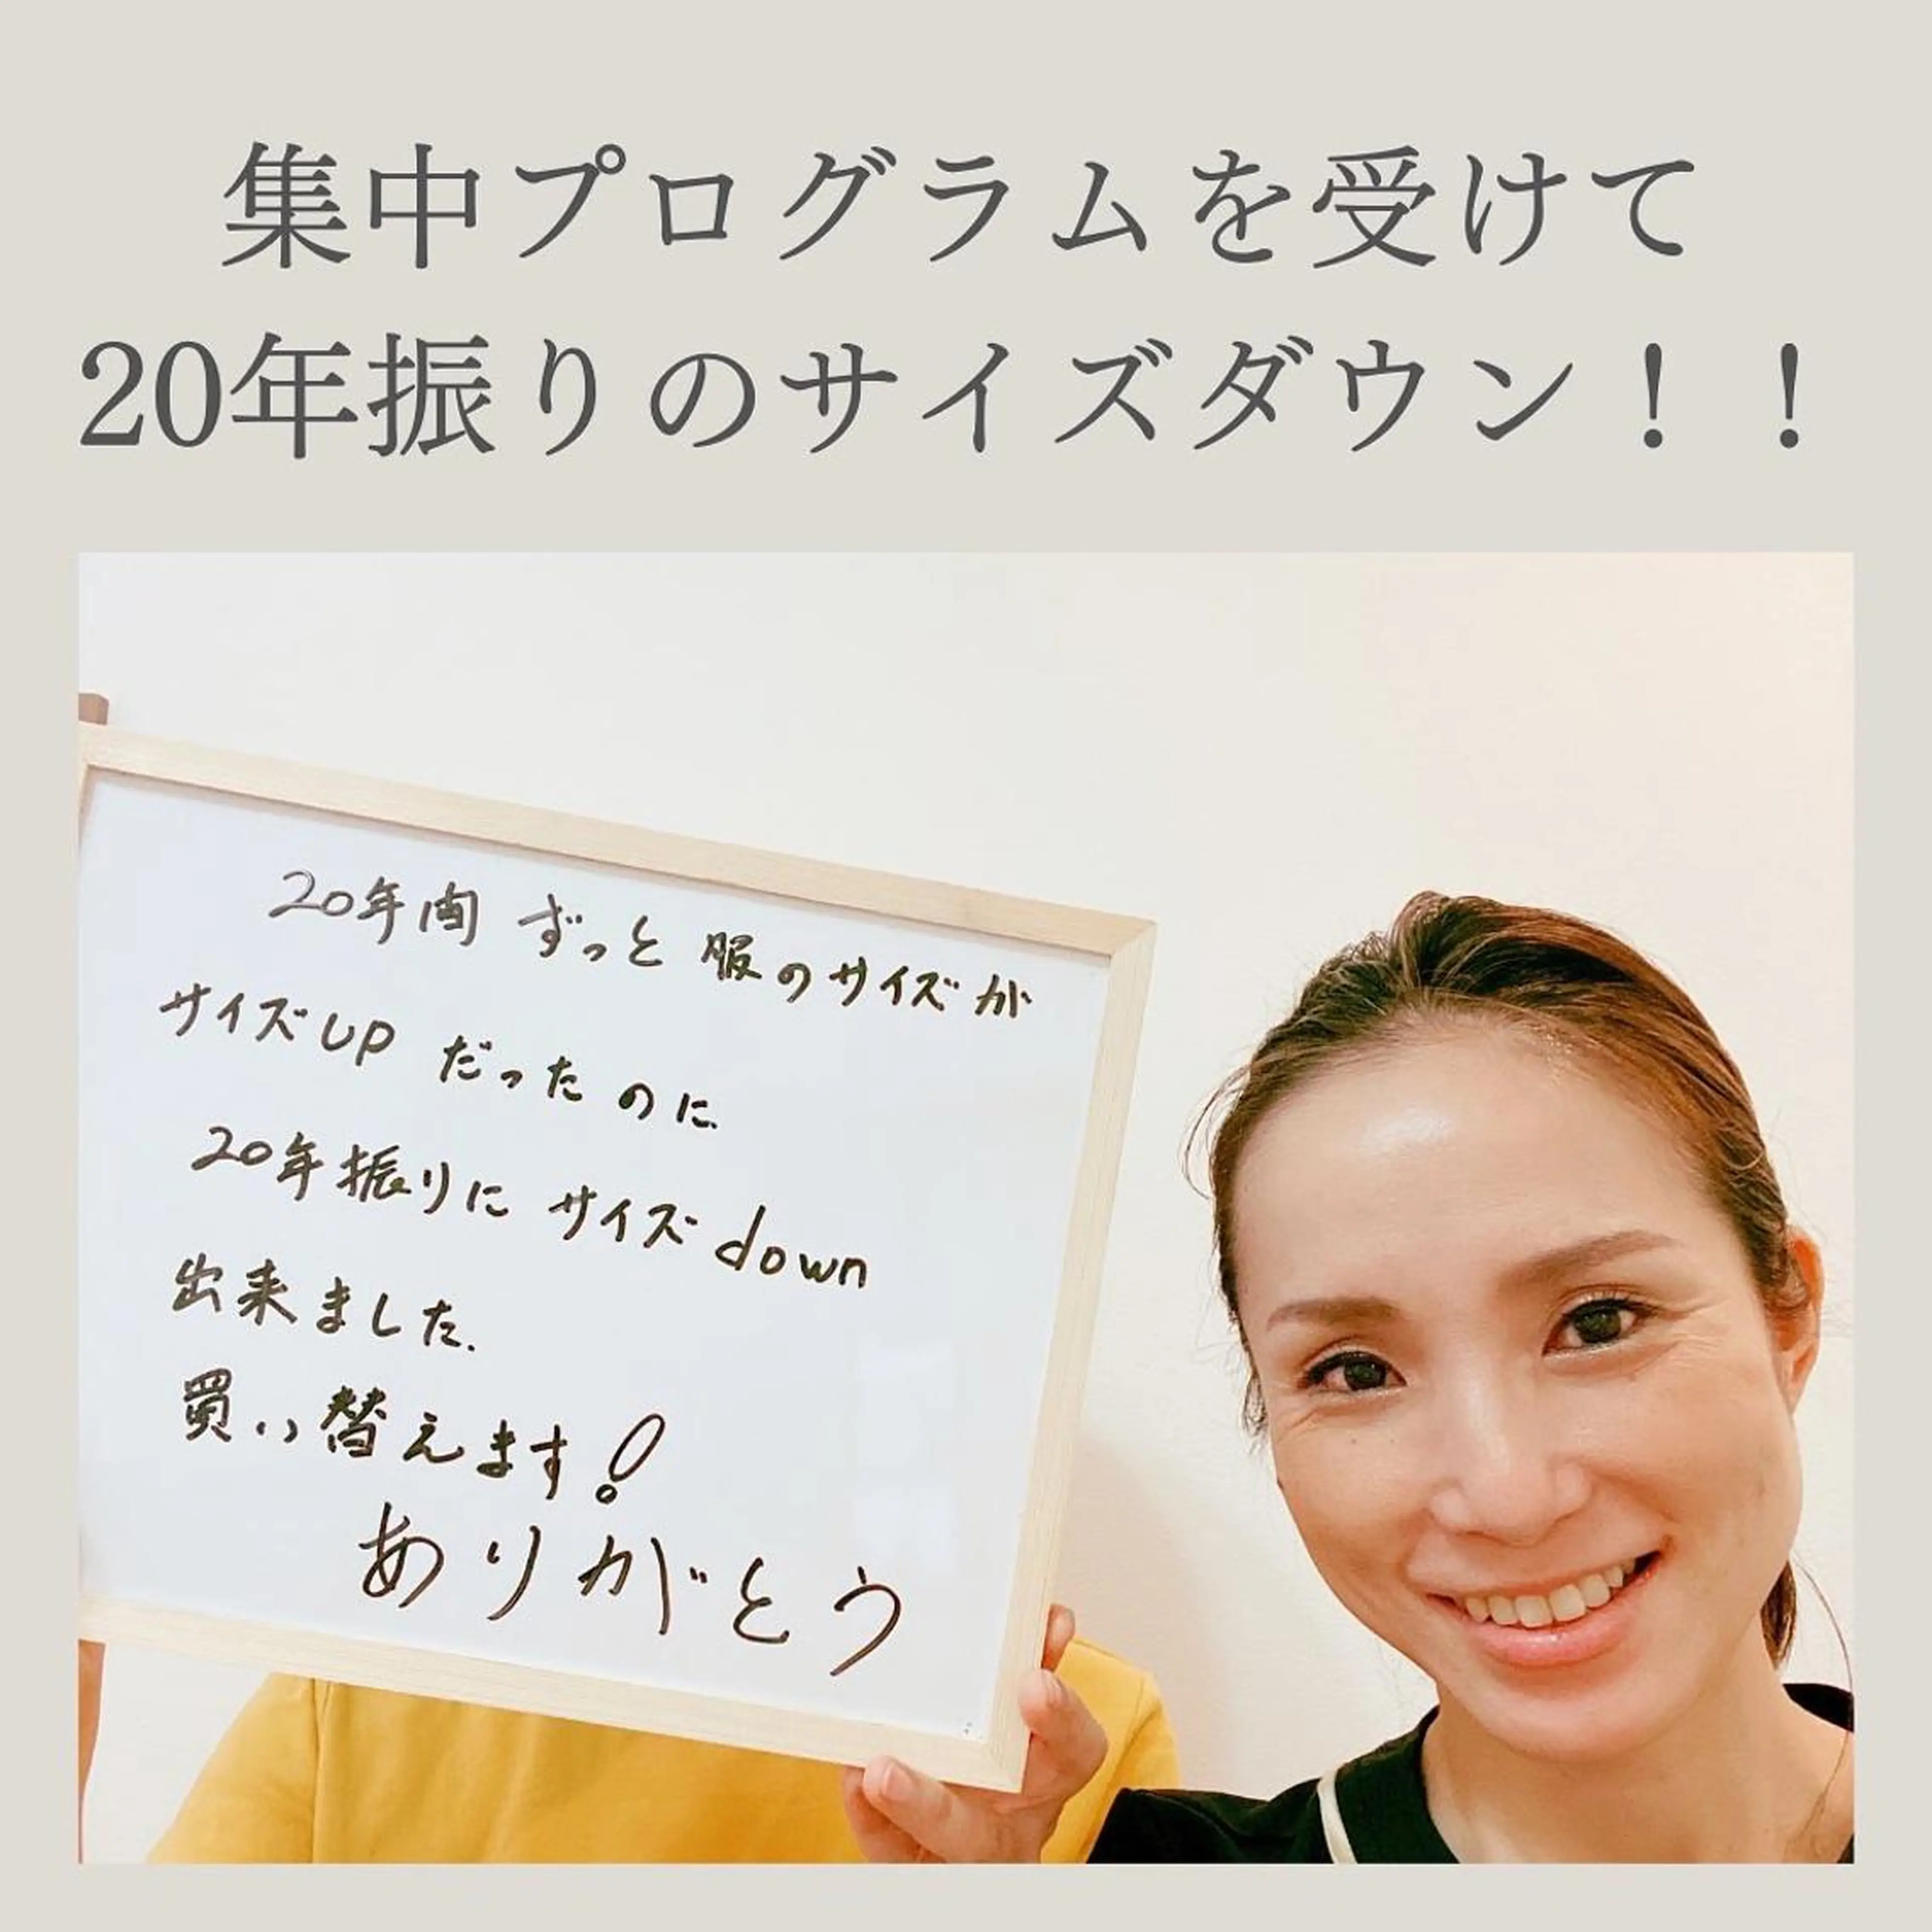 集中プログラムを受けて
20年振りのサイズダウン！！
20年間 ずっと 服のサイズが
サイズUP だったのに
20年振りに サイズdown
出来ました.
買い替えます!
ありがとう